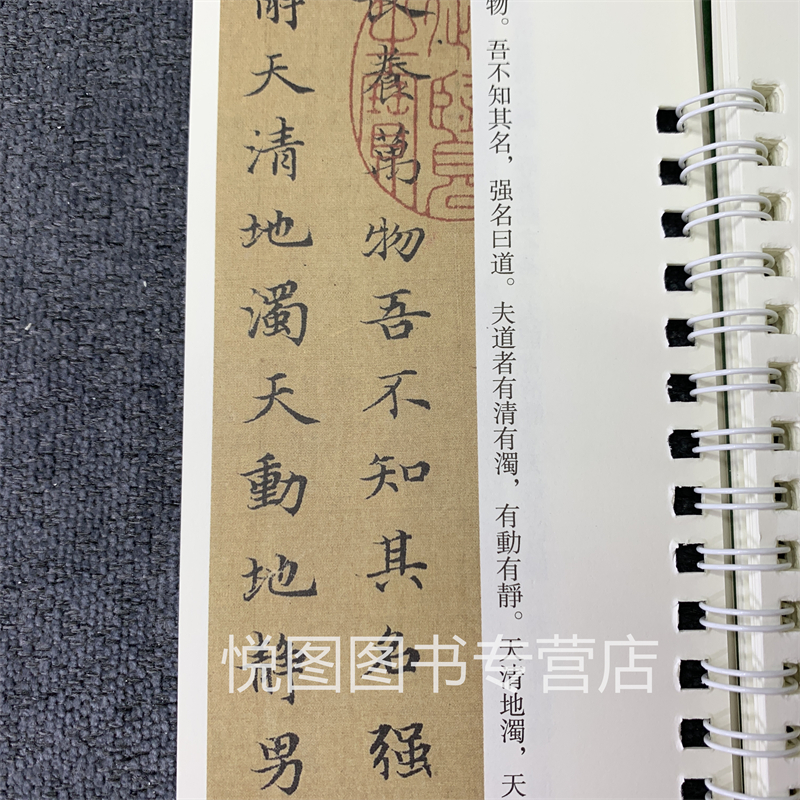 物。吾不知其名，强名曰道。夫道者有清有濁，有動有靜。天清地濁，天
養萬物吾不知其名强
天清地濁天動地靜男
悦图图书专营店